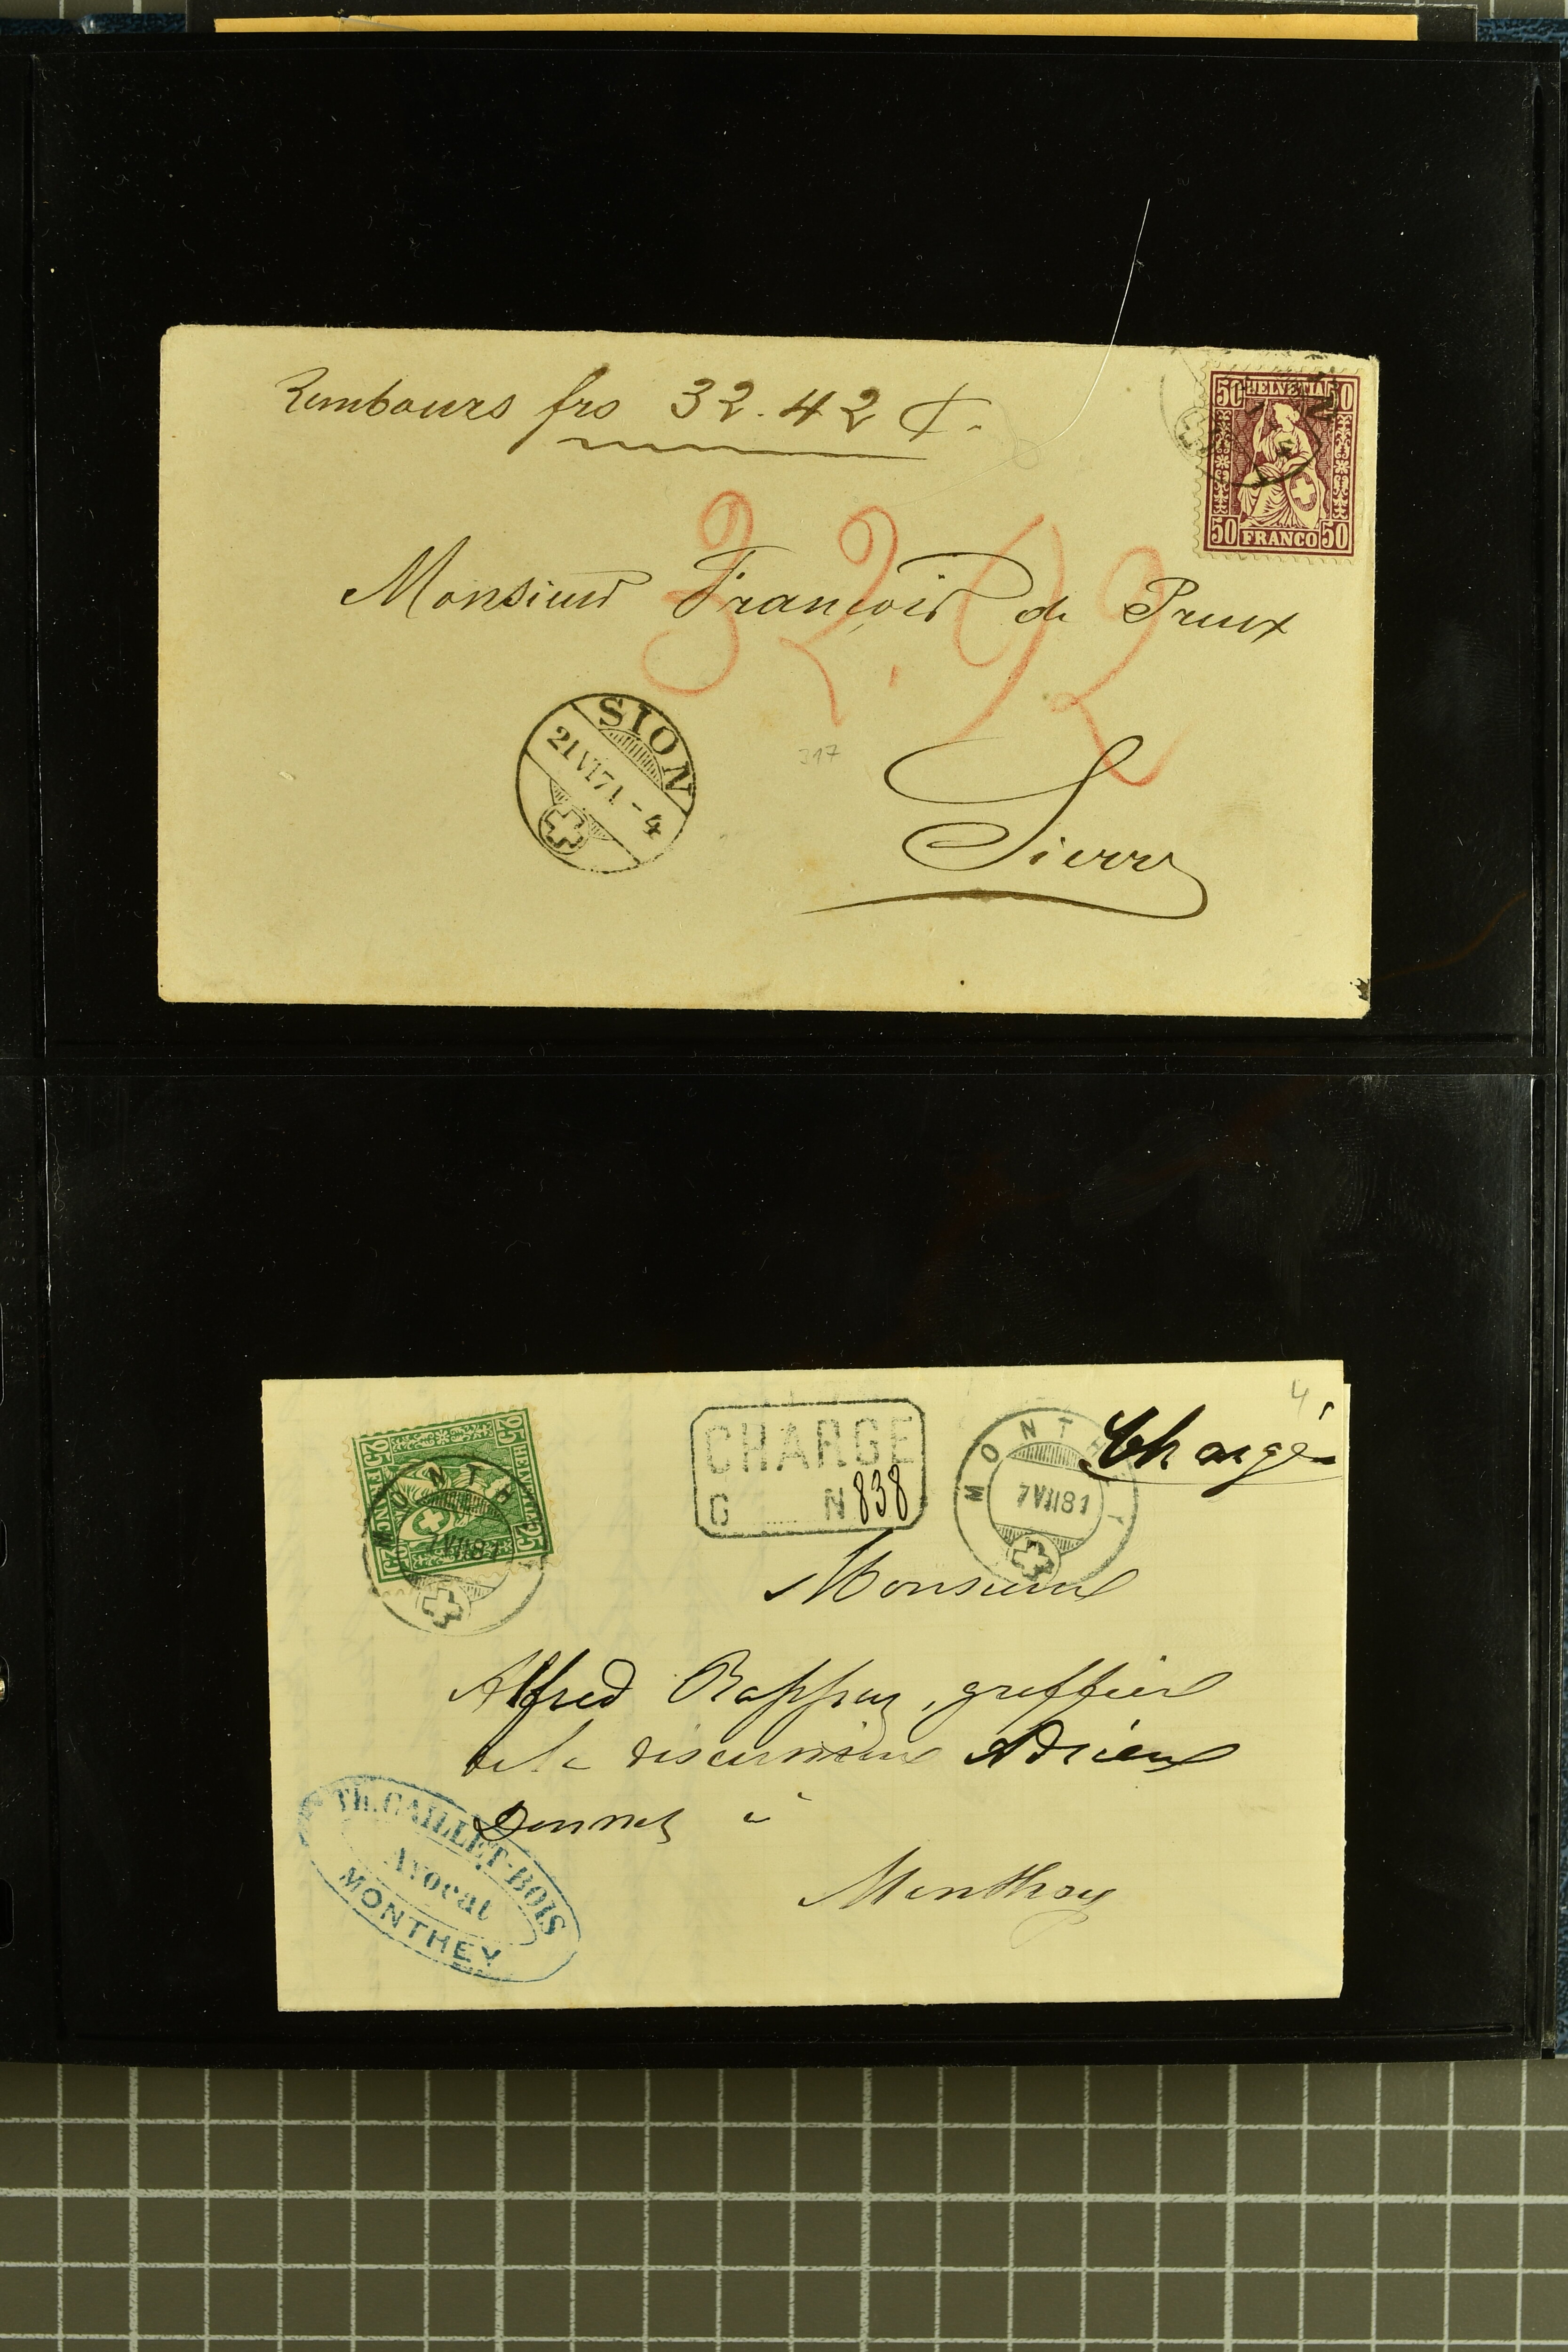 Rembours frs 32.42 Ct.
50 HELVETIA 50
50 FRANCO 50
32.92
Monsieur François de Preux
SION
21 VI 71 - 4
317
Sierre
4
25 HELVETIA 25
25 FRANCO 25
MONTHEY
7 VII 81
CHARGÉ
G N 838
MONTHEY
7 VII 81
Chargé
Monsieur
Alfred Rappaz, greffier
de la discussion Adrien
Donnet à
Monthey
TH. GAILLET-BOIS
Avocat
MONTHEY